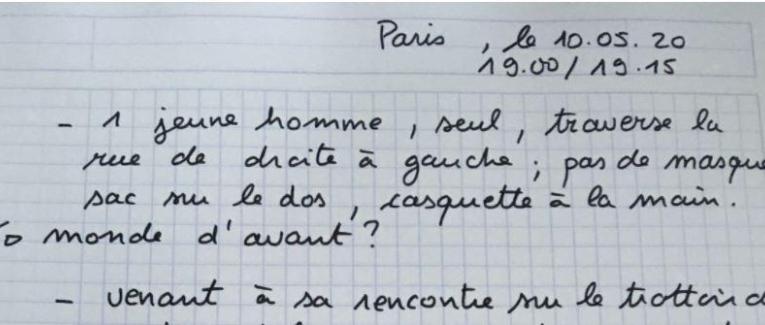 Paris , le 10.05.20
19.00/19.15
- 1 jeune homme, seul, traverse la
rue de droite à gauche ; pas de masque
sac sur le dos, casquette à la main.
monde d'avant ?
- venant à sa rencontre sur le